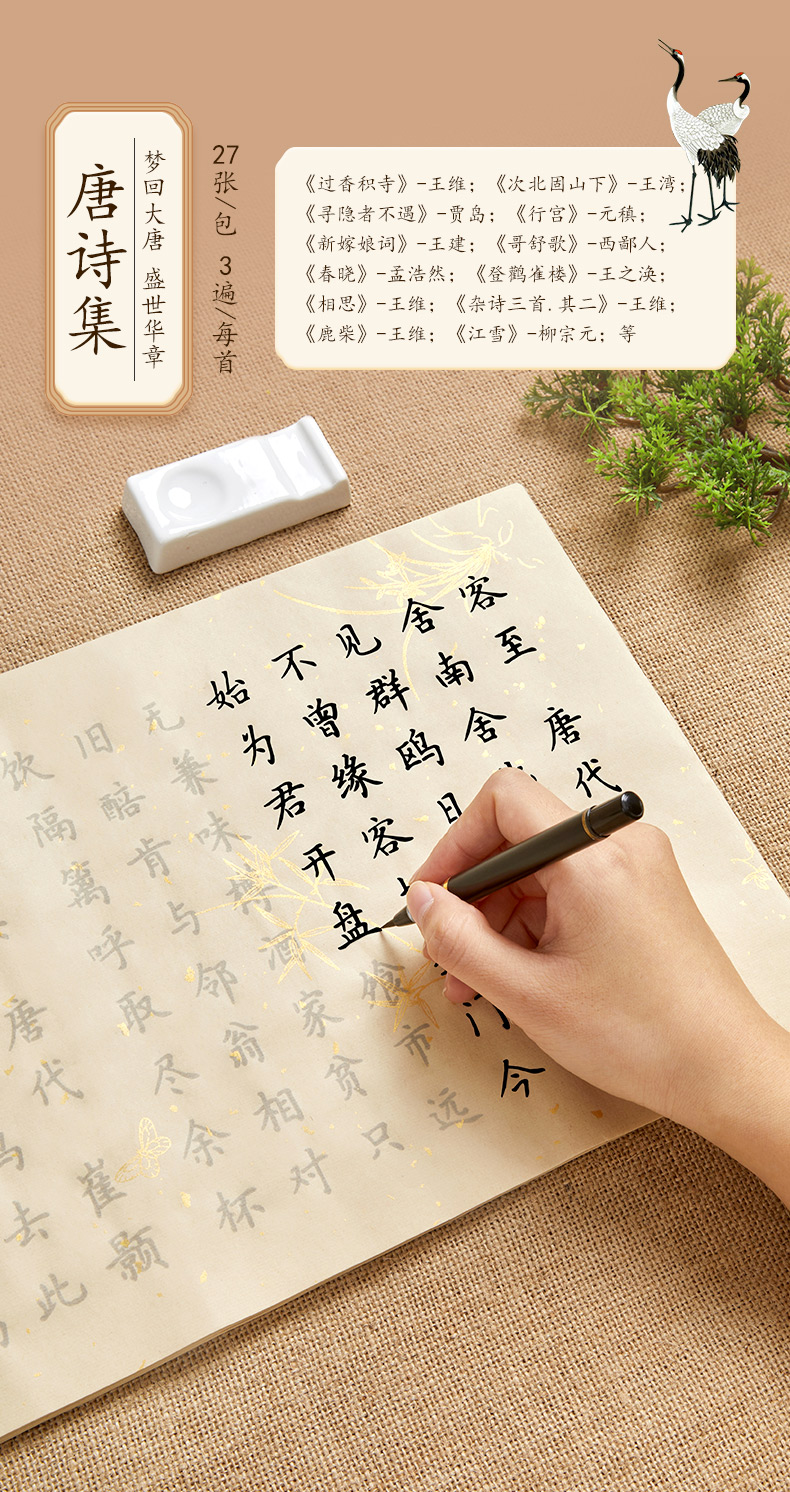 唐诗集
梦回大唐 盛世华章
27张/包 3遍/每首
《过香积寺》-王维；《次北固山下》-王湾；
《寻隐者不遇》-贾岛；《行宫》-元稹；
《新嫁娘词》-王建；《哥舒歌》-西鄙人；
《春晓》-孟浩然；《登鹳雀楼》-王之涣；
《相思》-王维；《杂诗三首.其二》-王维；
《鹿柴》-王维；《江雪》-柳宗元；等
客至 唐代
舍南舍
见群鸥日
不曾缘客门今
始为君开盘市远
无兼味樽酒家贫只
旧醅肯与邻翁相对
饮隔篱呼取尽余杯
唐代 崔颢
去此